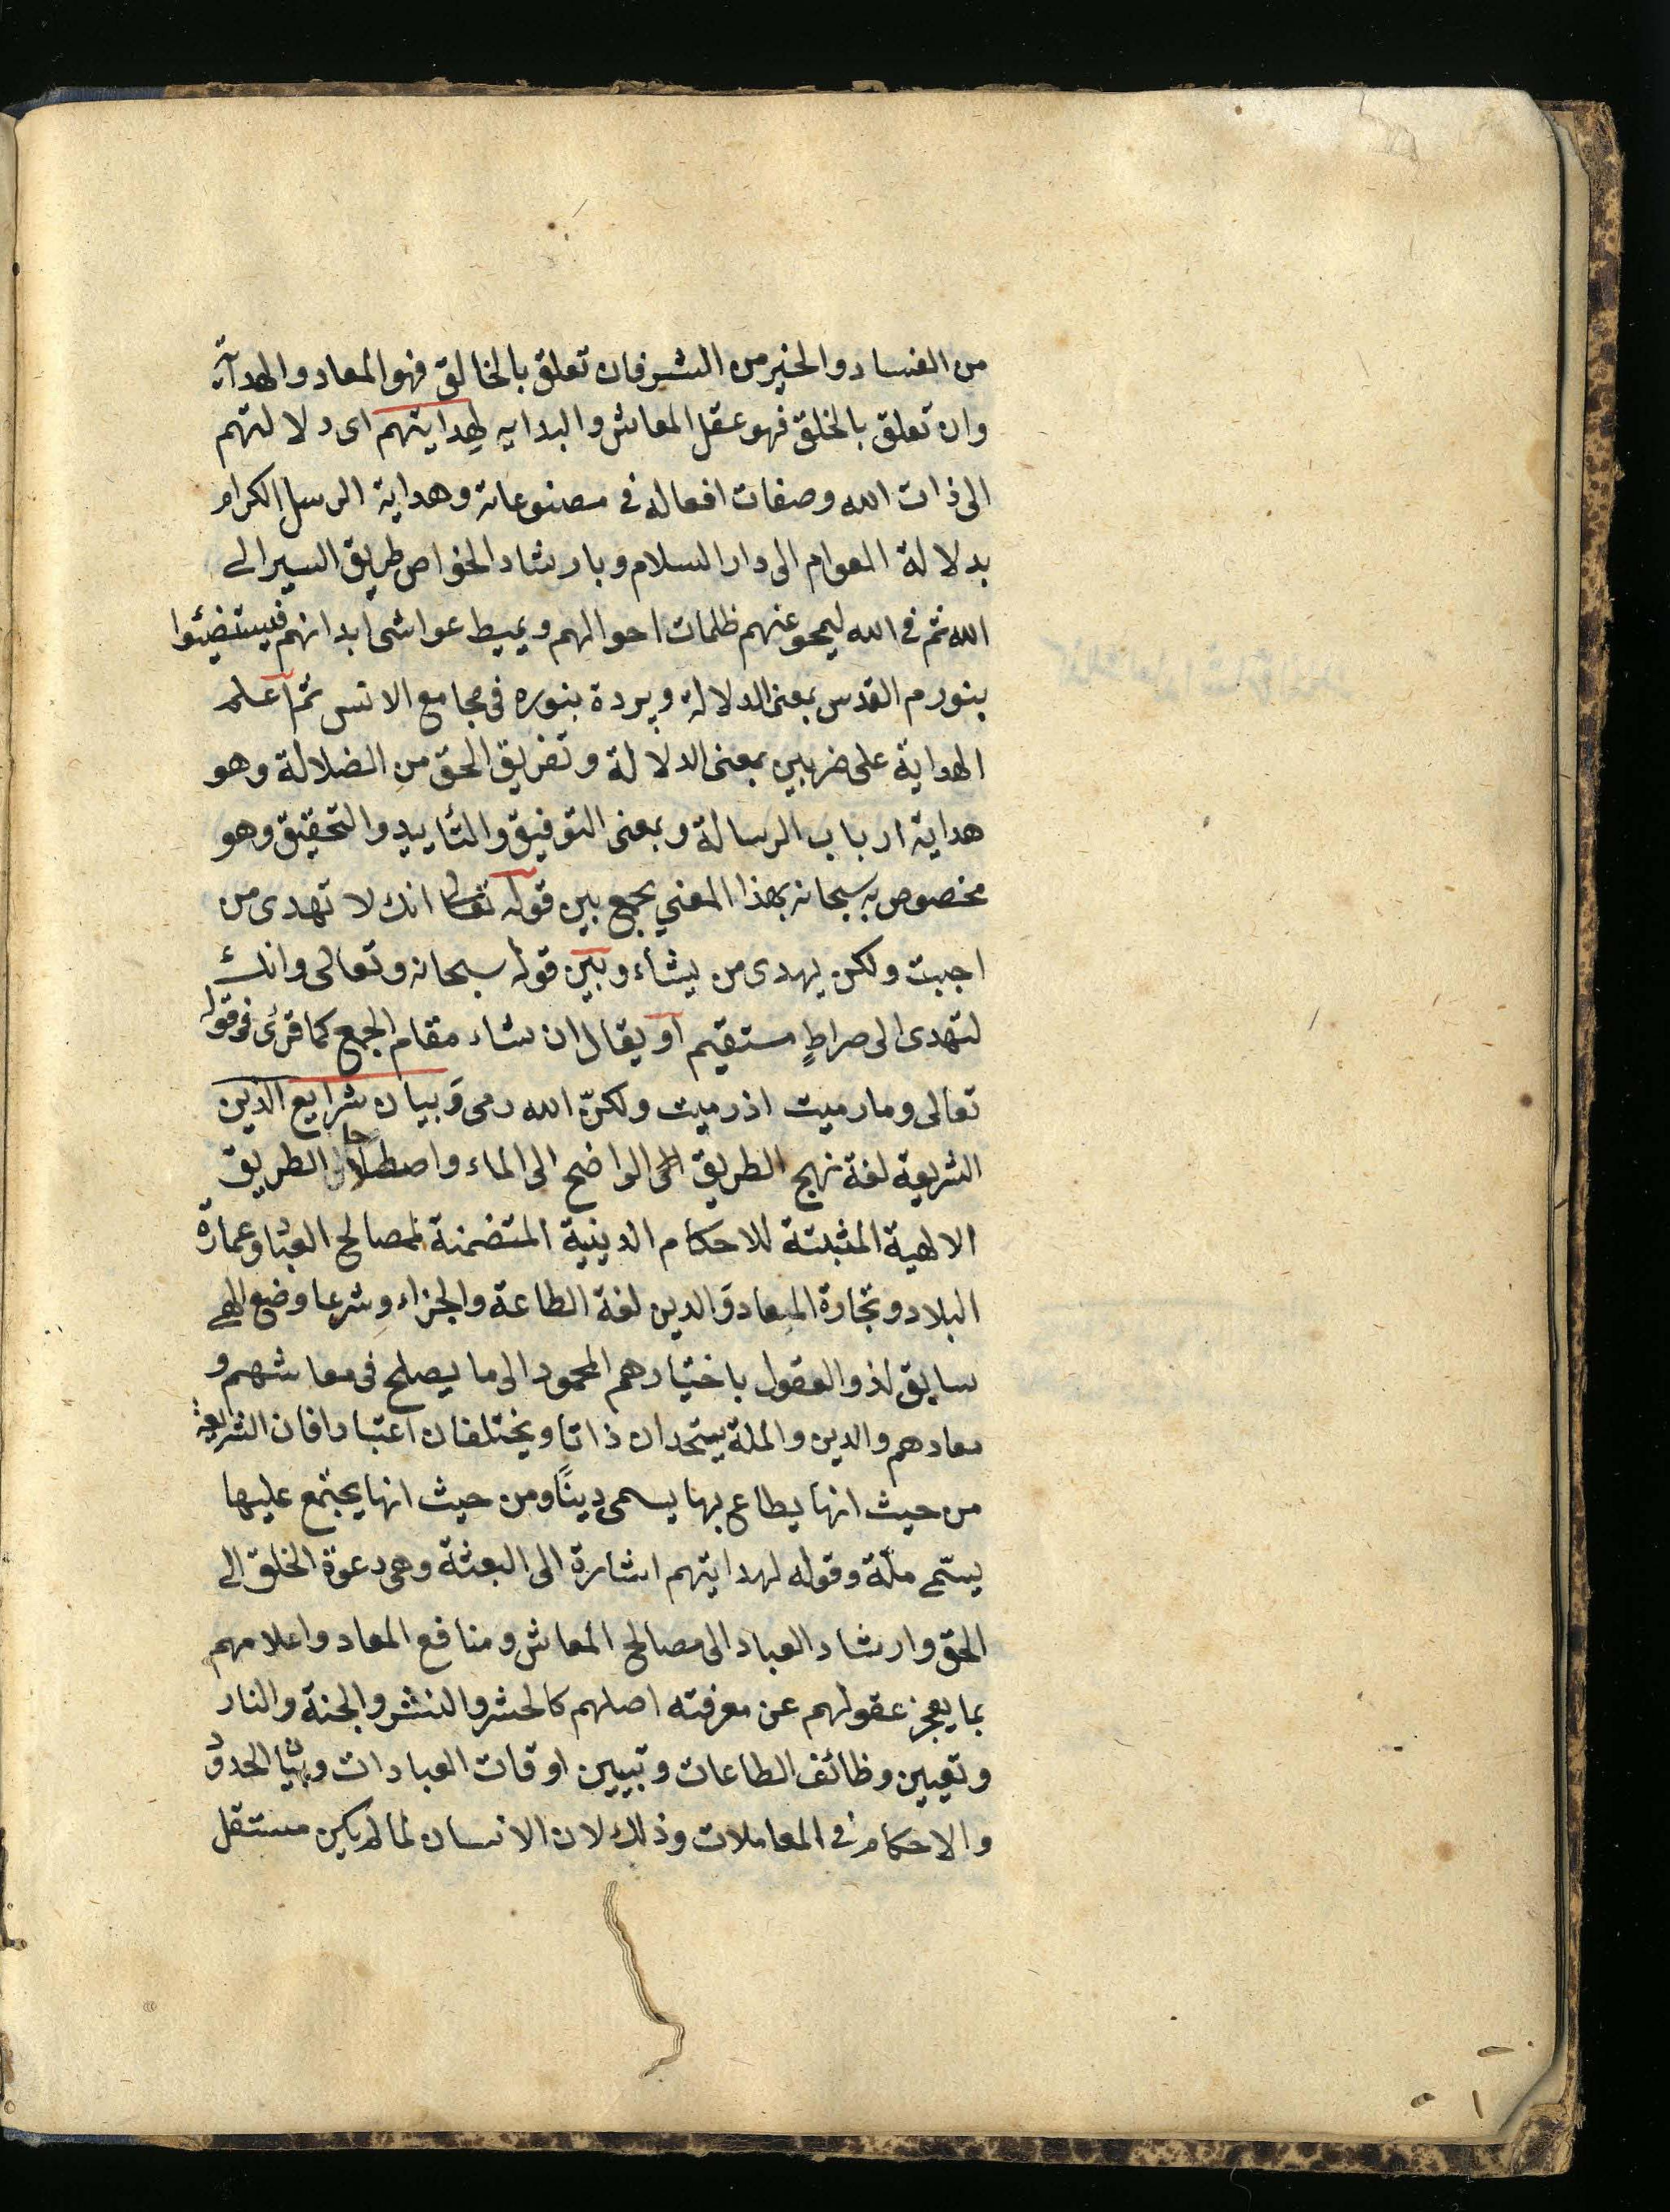 من الفساد والخير من الشر فان تعلق بالخالق فهو المعاد والهداية
وان تعلق بالخلق فهو عقل المعاش والبدايه لهدايتهم اى دلالتهم
الى ذات الله وصفات افعاله فى مصنوعاته وهداية الرسل الكرام
بدلالة العوام الى دار السلام وبارشاد الخواص طريق السير الى
الله ثم فى الله ليمحو عنهم ظلمات احوالهم ويميط غواشى ابدانهم فيستضيئوا
بنورم القدس بمعنى الدلالة وبردة بنوره فى مجامع الانس ثم اعلم
الهداية على ضربين بمعنى الدلالة وتفريق الحق من الضلالة وهو
هداية ارباب الرسالة وبمعنى التوفيق والتأييد والتحقيق وهو
مخصوص به سبحانه بهذا المعنى يجمع بين قوله تعالى انك لا تهدى من
احببت ولكن يهدى من يشاء وبين قوله سبحانه وتعالى وانك
لتهدى الى صراطٍ مستقيم او يقال ان شاء مقام الجمع كما قرئ فى قوله
تعالى وما رميت اذ رميت ولكنّ الله رمى وَبيان شرايع الدين
الشريعة لغة نهج الطريق الواضح الى الماء واصطلاحا الطريق
الالهية المثبتة للاحكام الدينية المتضمنة لمصالح العباد وعمارة
البلاد وتجارة الميعاد وَالدين لغة الطاعة والجزاء وشرعا وضع الهى
سايق لذو العقول باختيارهم المحمود الى ما يصلح فى معاشهم و
معادهم والدين والملة يتحدان ذاتا ويختلفان اعتبارا فان الشريعة
من حيث انها يطاع بها يسمى دينًا ومن حيث انها يجتمع عليها
يسمّى ملّة وقوله لهدايتهم اشارة الى البعثة وهى دعوة الخلق الى
الحق وارشاد العباد الى مصالح المعاش ومنافع المعاد واعلامهم
بما يعجز عقولهم عن معرفته اصلهم كالحشر والنشر والجنة والنار
وتعيين وظائف الطاعات وتبيين اوقات العبادات وبيان الحدود
والاحكام فى المعاملات وذلك لان الانسان لما لم يكن مستقل